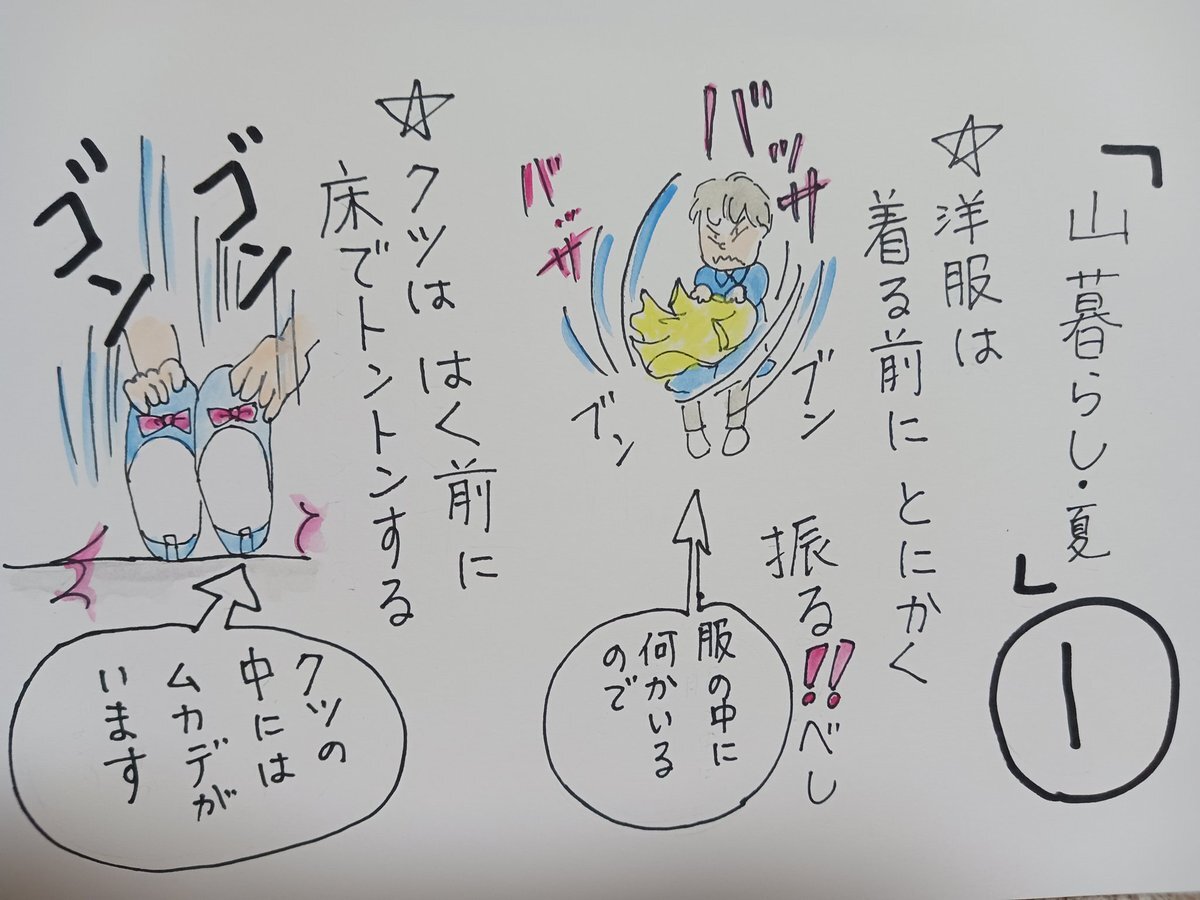 「山暮らし・夏」
1
☆洋服は
着る前に とにかく
振る!!べし
バッサ
バッサ
ブン
ブン
服の中に
何かいる
ので
☆クツは はく前に
床でトントンする
ゴン
ゴン
クツの
中には
ムカデが
います